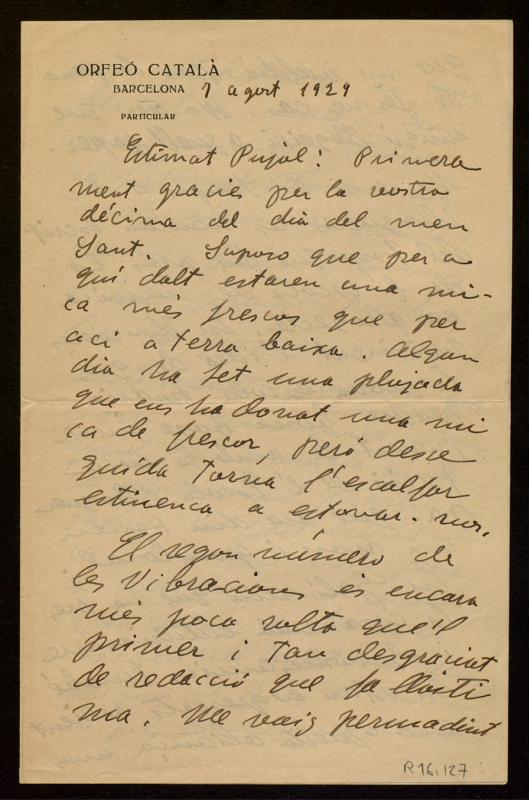 ORFEÓ CATALÀ
BARCELONA
7 agost 1929
PARTICULAR
Estimat Pujol: Primera
ment gracies per la vostra
décima del dia del meu
Sant. Suposo que per a
quí dalt estaren una mi-
ca més frescos que per
aci a terra baixa. Algun
dia ha fet una plujada
que ens ha donat una mi
ca de frescor, peró desse
guida torna l'escalfor
a estovar-nos.
El segon número de
les Vibracions és encara
més poca solta que'l
primer i tan desgraciat
de redacció que fa llasti
ma. Me vaig
R 16, 127